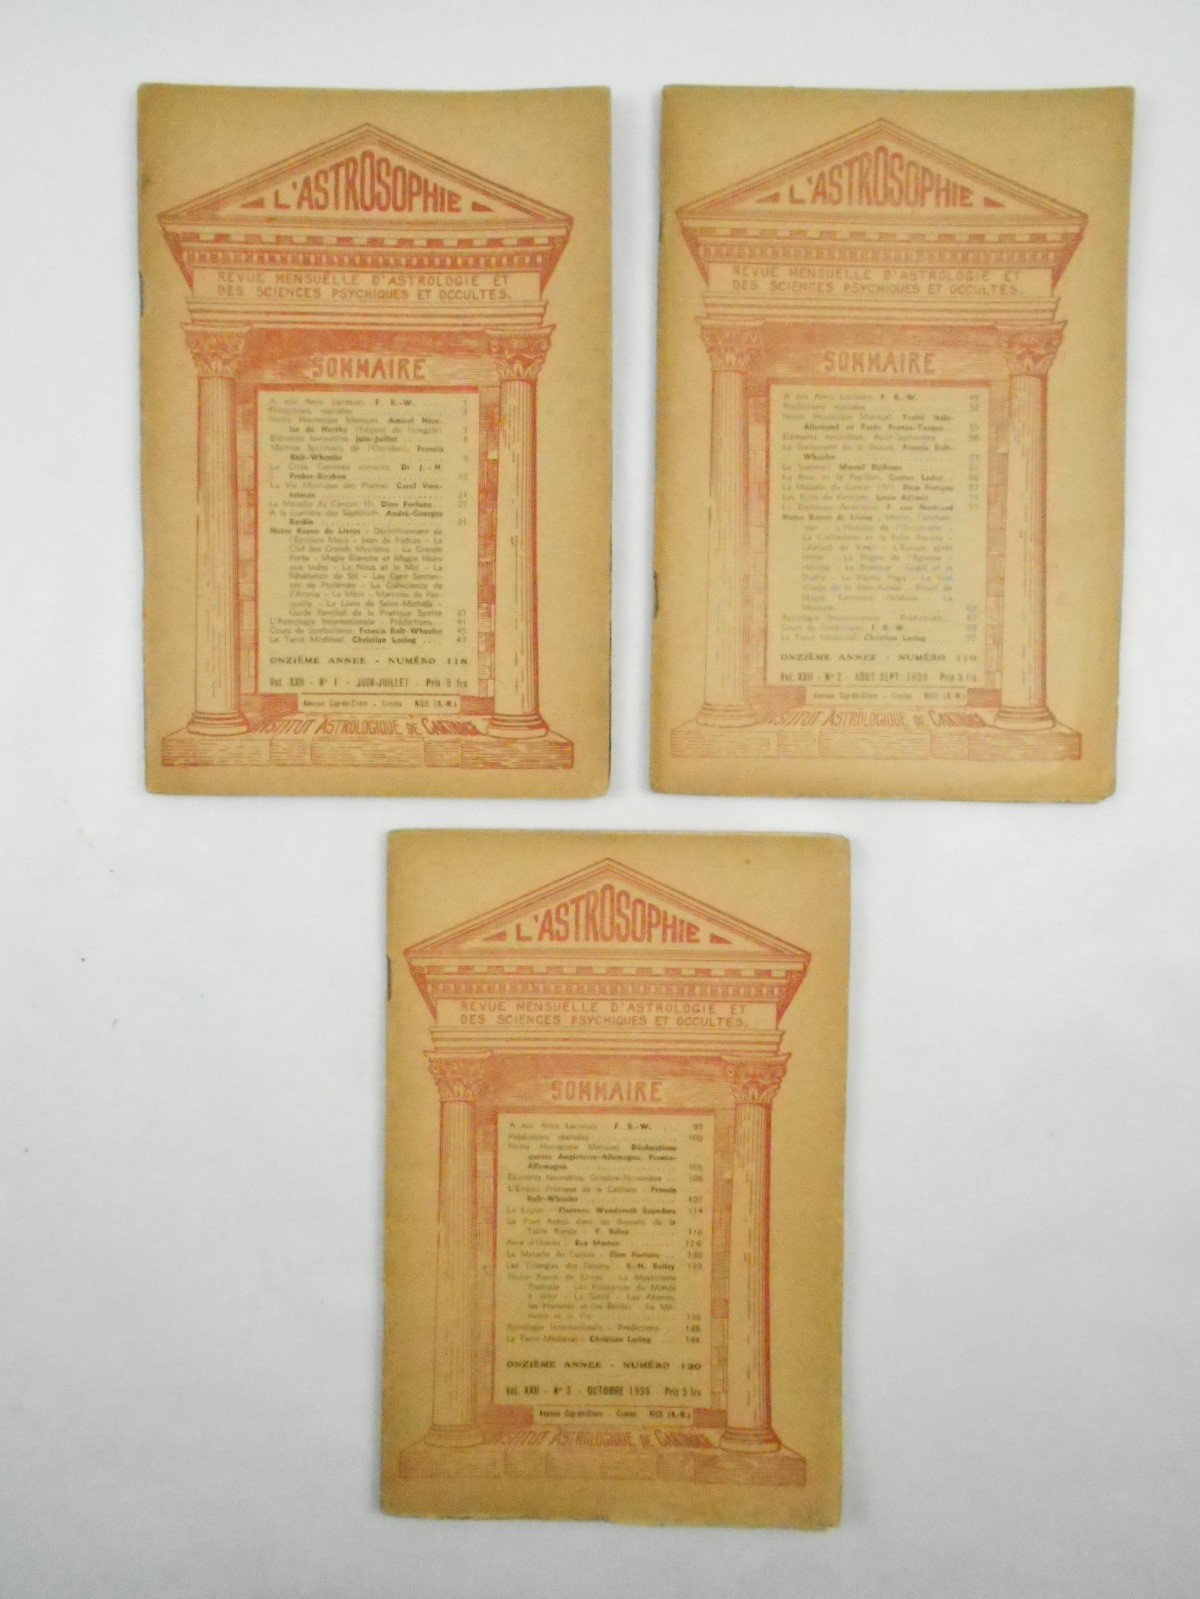 L'ASTROSOPHIE
REVUE MENSUELLE D'ASTROLOGIE ET
DES SCIENCES PSYCHIQUES ET OCCULTES.
SOMMAIRE
A nos Amis Lecteurs. F. R.-W. 1
Prédictions réalisées
Notre Horoscope Mensuel. Amiral Nico-
las de Horthy (Régent de Hongrie) 7
Eléments favorables Juin-Juillet 8
Maîtres Spirituels de l'Occident. Francis
Rolt-Wheeler 9
La Croix Gammée Dr J.-H.
Probst-Biraben 15
La Vie Mystique des Plantes. Carol Vers-
21
La Maladie du Cancer. III. Dion Fortune 27
A la Lumière des Sephiroth. André-Georges
31
Notre Rayon de Livres : Déchiffrement de
l'Ecriture Maya - Jean de - La
Clef des Grands Mystères - La Grande
Porte - Magie Blanche et Magie Noire
aux Indes - Le Nous et le Moi - La
Révélation de - Les Cent Senten-
ces de Ptolémée - La Conscience de
l'Atome - La Mère - Martines de Pas-
qually - Le Livre de Saint-Michel -
Guide Familial de la Pratique Spirite 37
L'Astrologie Internationale - Prédictions. 41
Cours de Symbolisme. Francis Rolt-Wheeler 45
Le Tarot Médiéval. Christian Loring 47
ONZIÈME ANNEE - NUMÉRO 118
Vol. XXII - N° 1 - JUIN-JUILLET - Prix 5 frs
Avenue Cap-de-Croix - Cimiez NICE (A.-M.)
INSTITUT ASTROLOGIQUE DE CARTHAGE
L'ASTROSOPHIE
REVUE MENSUELLE D'ASTROLOGIE ET
DES SCIENCES PSYCHIQUES ET OCCULTES.
SOMMAIRE
A nos Amis Lecteurs. F. R.-W. 49
Prédictions réalisées 52
Notre Horoscope Mensuel. Traité Italo-
Allemand et Pacte Franco-Turque 55
Eléments favorables, Août-Septembre 56
Le Sacrement de la Beauté. Francis Rolt-
Wheeler
Marcel
La Rose et le Papillon. Gaston
La Maladie du Cancer (IV). Dion Fortune 67
Louis
F. van
Notre Rayon de Livres : Merlin, l'enchan-
teur - L'Histoire de l'Occultisme -
La Civilisation et la
Léonard de Vinci - L'Europe après
Hitler - Le Règne de l'Agneau -
et le
Diable - Le Karma Yoga - Le Vrai
Visage de la - Rituel de
Magie - La
Astrologie Internationale - Prédictions
Cours de Symbolisme. F. R.-W.
Le Tarot Médiéval. Christian Loring 95
ONZIÈME ANNEE - NUMÉRO 119
Vol. XXII - N° 2 - AOUT-SEPT. 1939 Prix 5 frs
Avenue Cap-de-Croix - Cimiez NICE (A.-M.)
INSTITUT ASTROLOGIQUE DE CARTHAGE
L'ASTROSOPHIE
REVUE MENSUELLE D'ASTROLOGIE ET
DES SCIENCES PSYCHIQUES ET OCCULTES.
SOMMAIRE
A nos Amis Lecteurs - F. R.-W. 97
Prédictions réalisées 100
Notre Horoscope Mensuel. Déclarations
guerre Angleterre-Allemagne, France-
Allemagne 105
Eléments favorables, Octobre-Novembre 106
L'Empire de la - Francis
Rolt-Wheeler 107
Florence Wanderoth Saunders 114
Le Plan Astral dans les Romans de la
Table Ronde - 118
Ame d'Oiseau - Eva Martin 126
La Maladie du Cancer - Dion Fortune 130
Les Triangles des Décans - E.-H. Bailey 133
Notre Rayon de Livres - Le Mysticisme
Pratique - Les Puissances du Monde
à venir - La Santé - Les Atomes,
les Hommes et les Etoiles -
et la Vie 136
Astrologie Internationale - Prédictions 138
Le Tarot Médiéval - Christian Loring 144
ONZIÈME ANNEE - NUMÉRO 120
Vol. XXII - N° 3 - OCTOBRE 1939 Prix 5 frs
Avenue Cap-de-Croix - Cimiez NICE (A.-M.)
INSTITUT ASTROLOGIQUE DE CARTHAGE